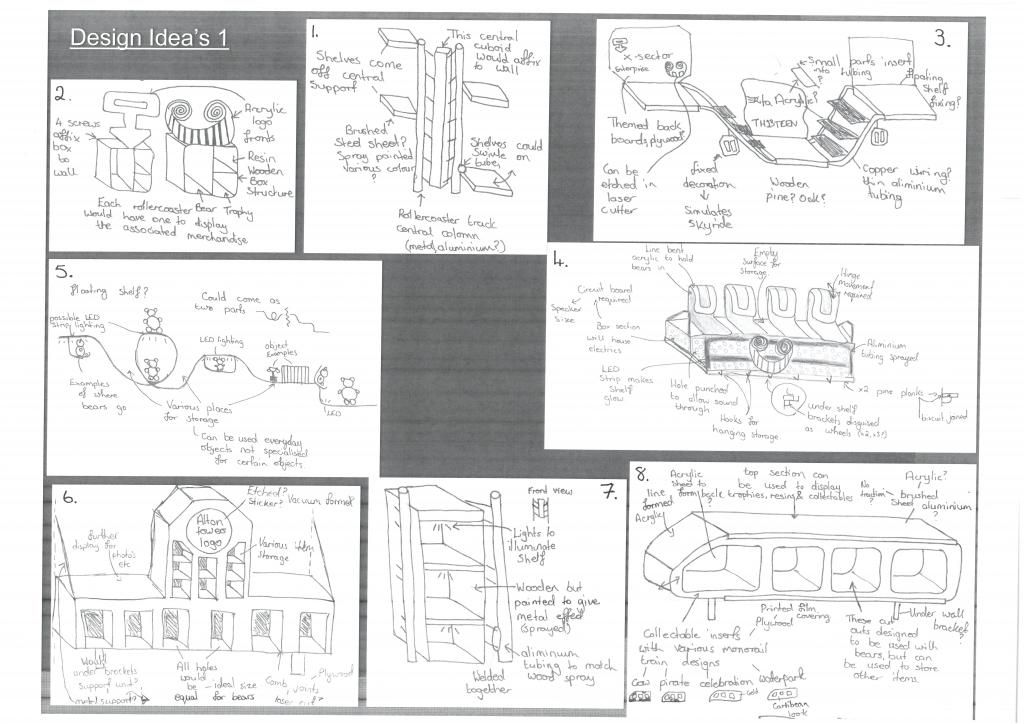 Design Idea's 1
1.
Shelves come
off central
support
This central
cuboid
would affix
to wall
Brushed
Steel sheet?
Spray painted
various colour
?
Shelves could
swivle on
tube,
Rollercoaster track
central column
(metal, aluminium?)
2.
4 screws
affix
box
to
wall
Acrylic
logo
fronts
Resin
Wooden
Box
Structure
Each rollercoaster Bear Trophy
would have one to display
the associated merchandise
3.
x-sector
Enterprise
Small parts insert
into tubing
floating
shelf
fixing?
Acrylic?
TH13TEEN
Themed back
boards, plywood
Can be
etched in
laser
cutter
fixed
decoration
Simulates
skyride
Wooden
Pine? Oak?
Copper wiring?
thin aluminium
tubing
4.
Line bent
acrylic to hold
bears in
Empty
Surface for
storage
Hinge
movement
required
Circuit board
required
Speaker
size
Box section
will house
electrics
LED
Strip makes
shelf
glow
Hole punched
to allow sound
through
Hooks for
hanging storage.
under shelf
brackets disguised
as wheels (x2, x3?)
Aluminium
tubing sprayed
x2 pine planks
biscuit joined
5.
floating shelf?
Could come as
two parts
possible LED
Strip lighting
LED lighting
object
Examples
Examples
of where
bears go
Various places
for storage
LED
Can be used everyday
objects not specialised
for certain objects.
6.
Etched?
Sticker?
Vacuum formed?
Alton
towers
logo
further
display for
photo's
etc
Various item
Storage
Would
under brackets
support unit?
metal support?
All holes
would
be ideal size
equal for bears
Comb joints
laser cut?
Plywood
7.
Front view
Lights to
illuminate
shelf
Wooden but
painted to give
metal effect
(sprayed)
aluminium
tubing to match
wood spray
Welded
together
8.
Acrylic
sheet to
form back
line
formed
Acrylic
top section can
be used to display
trophies, resins & collectables
No
traction
?
Acrylic?
brushed
Sheet aluminium
?
Printed film
Plywood covering
Under wall
bracket
?
Collectable inserts
with various monorail
train designs
Cow pirate celebration waterpark
Caribbean
look
These cut
outs designed
to be used with
bears, but can
be used to store
other items.